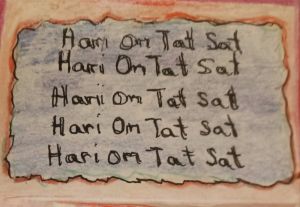 Hari Om Tat Sat
Hari On Tat Sat
Harii om Tat Sat
Hari Om Tat Sat
Hari om Tat Sat